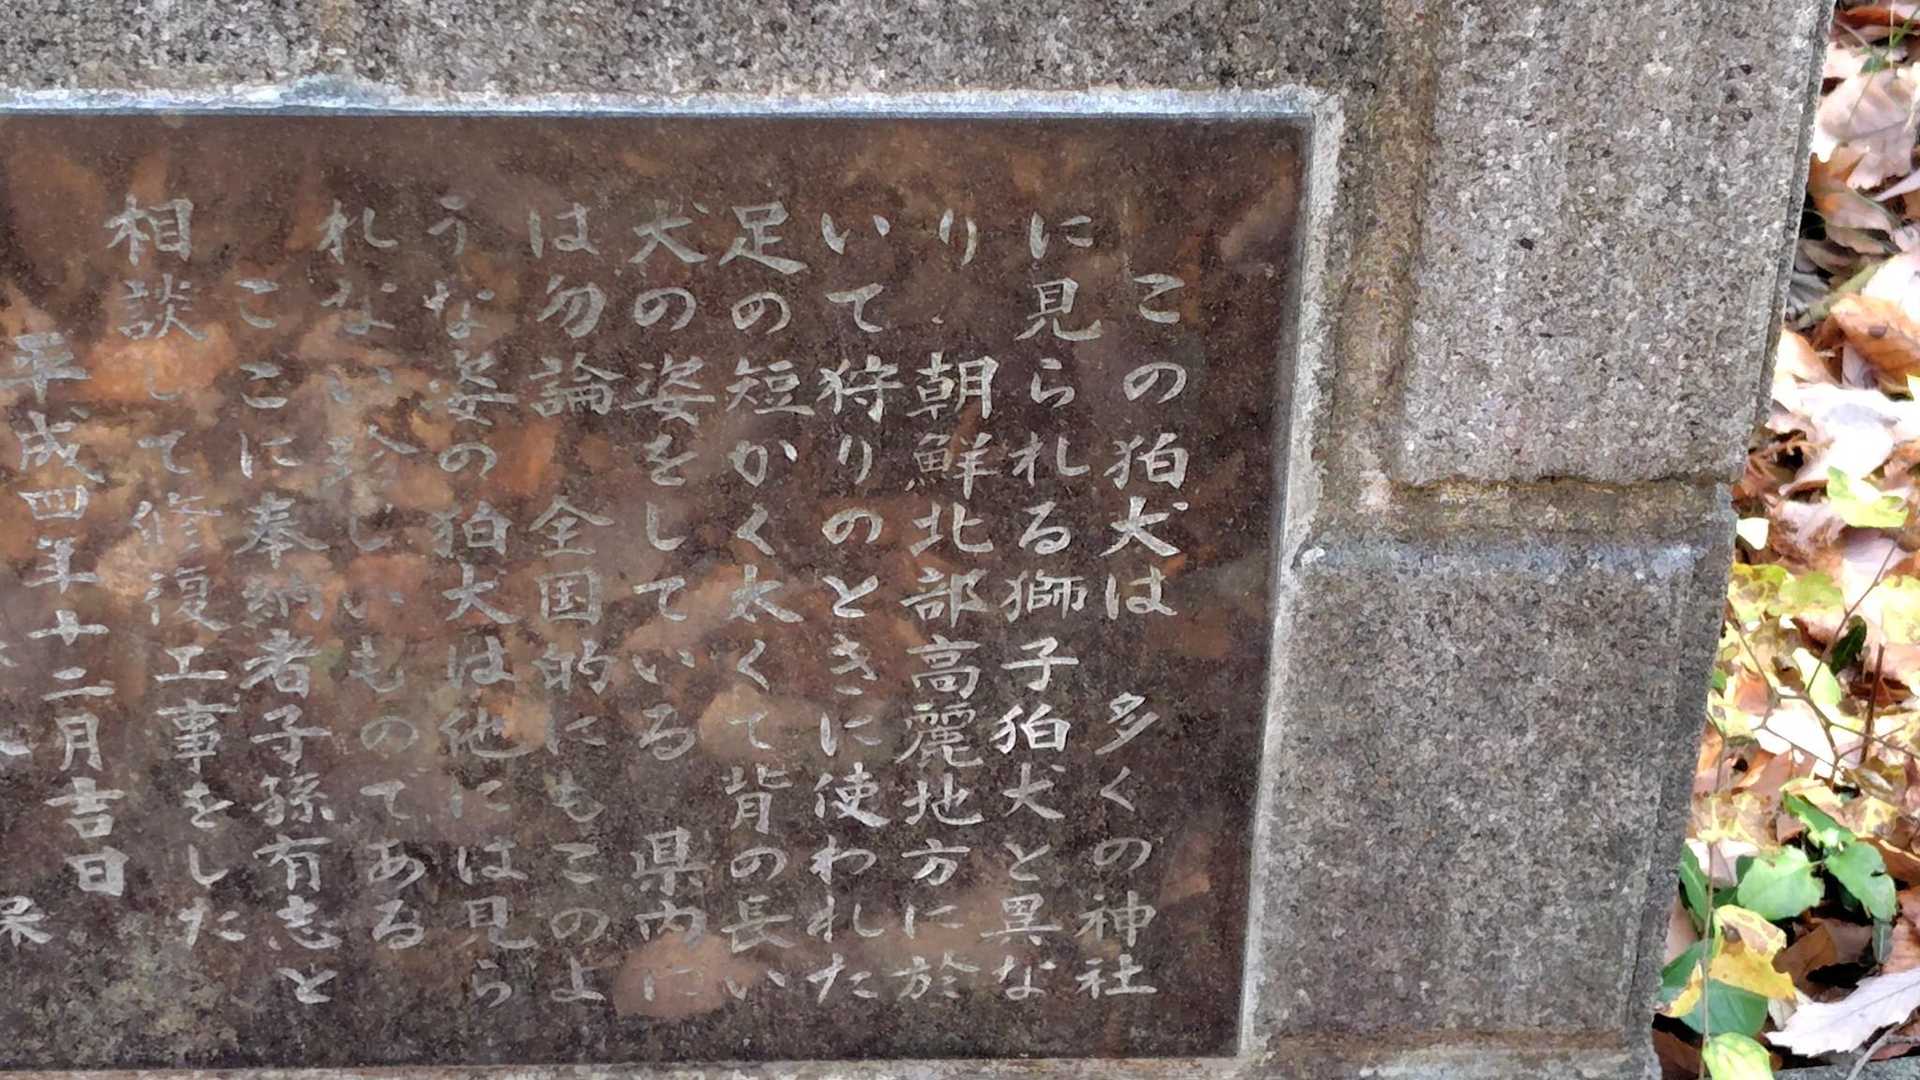 この狛犬は　多くの神社
に見られる獅子狛犬と異な
り　朝鮮北部高麗地方に於
いて狩りのときに使われた
足の短かく太くて背の長い
犬の姿をしている　県内に
は勿論　全国的にもこのよ
うな姿の狛犬は他には見ら
れない珍しいものである
ここに奉納者子孫有志と
相談して修復工事をした
平成四年十二月吉日